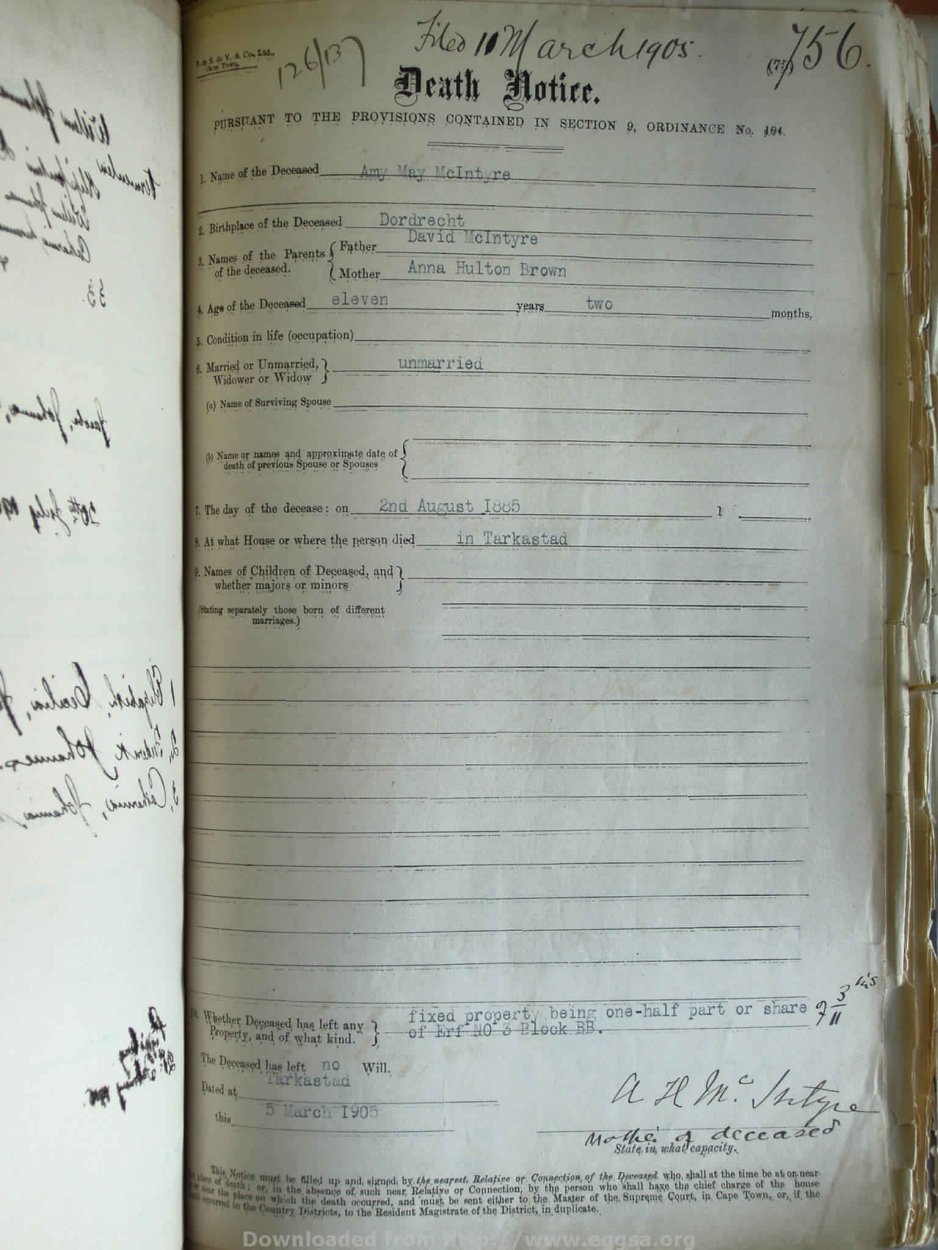 Filed 11 March 1905.
756.
126/137
Cape Town.
Death Notice.
PURSUANT TO THE PROVISIONS CONTAINED IN SECTION 9, ORDINANCE No. 104.
1. Name of the Deceased Amy May McIntyre
2. Birthplace of the Deceased Dordrecht
3. Names of the Parents of the deceased. Father David McIntyre
Mother Anna Hulton Brown
4. Age of the Deceased eleven years two months.
5. Condition in life (occupation)
6. Married or Unmarried, unmarried
Widower or Widow
(a) Name of Surviving Spouse
(b) Name or names and approximate date of
death of previous Spouse or Spouses
7. The day of the decease: on 2nd August 1885 1
8. At what House or where the person died in Tarkastad
9. Names of Children of Deceased, and
whether majors or minors
(Stating separately those born of different
marriages.)
10. Whether Deceased has left any fixed property being one-half part or share
Property, and of what kind. of Erf NO 3 Block BB.
The Deceased has left no Will.
Dated at Tarkastad
this 5 March 1905
A H McIntyre
Mother of deceased
State in what capacity.
This Notice must be filled up and signed by the nearest Relative or Connection of the Deceased who shall at the time be at or near
place of death; or, in the absence of such near Relative or Connection, by the person who shall have the chief charge of the house
or near the place on which the death occurred, and must be sent either to the Master of the Supreme Court, in Cape Town, or, if the
occurred in the Country Districts, to the Resident Magistrate of the District, in duplicate.
Downloaded from http://www.eggsa.org